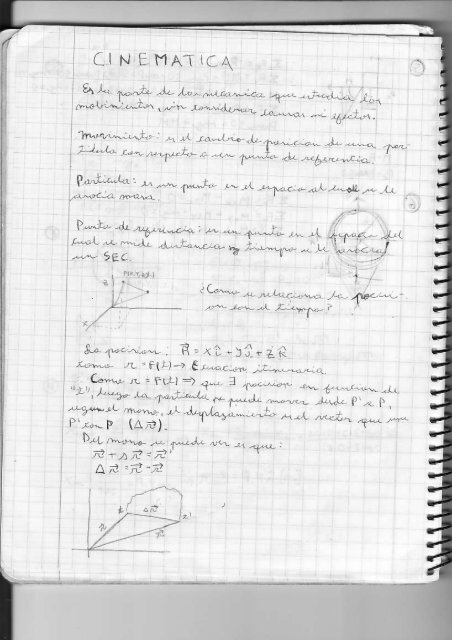 CINEMATICA
Es la parte de la mecanica que estudia los
movimientos, sin considerar causas ni efectos.
Movimiento: es el cambio de posicion de una par-
ticula con respecto a un punto de referencia.
Particula: es un punto en el espacio al cual se le
asocia masa.
Punto de referencia: es un punto en el espacio del
cual se mide distancia y tiempo se le asocia
un SEC.
P(X,Y,Z)
z
x
¿Como se relaciona la posici-
on con el tiempo?
La posicion: R = xî + yĵ + zk̂
como r = F(t) → Ecuacion itineraria
Como r = F(t) ⇒ que ∃ posicion en funcion de
"t", luego la particula se puede mover desde P' a P,
segun el mono, el desplazamiento es el vector que une
P' con P (Δr⃗).
Del mono se puede ver es que:
r⃗ + Δr⃗ = r⃗'
Δr⃗ = r⃗' - r⃗
Δr⃗
r⃗
r⃗'